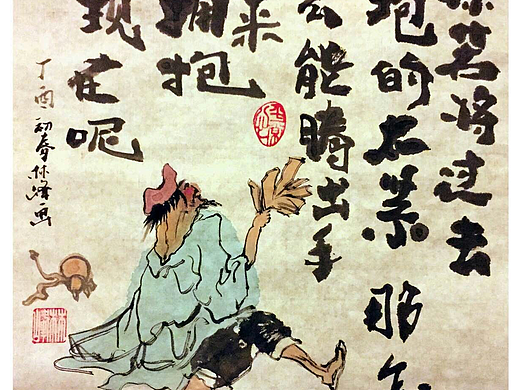 你若将过去
抱的太紧 那么
么能腾出手
来
拥抱
现在呢
丁酉初春林峰画